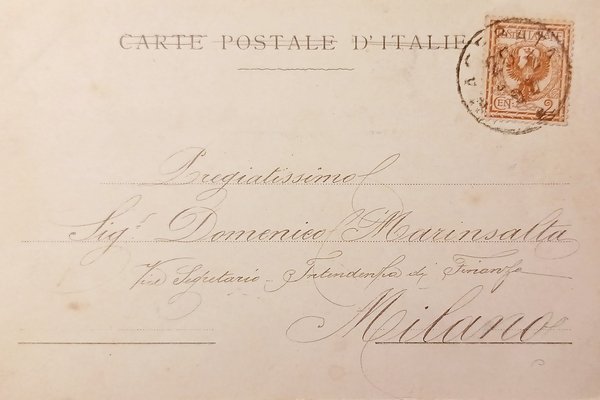 CARTE POSTALE D'ITALIE
CEN. 2
Pregiatissimo
Sig.r Domenico Marinsalta
Vice Segretario - Intendenza di Finanza
Milano